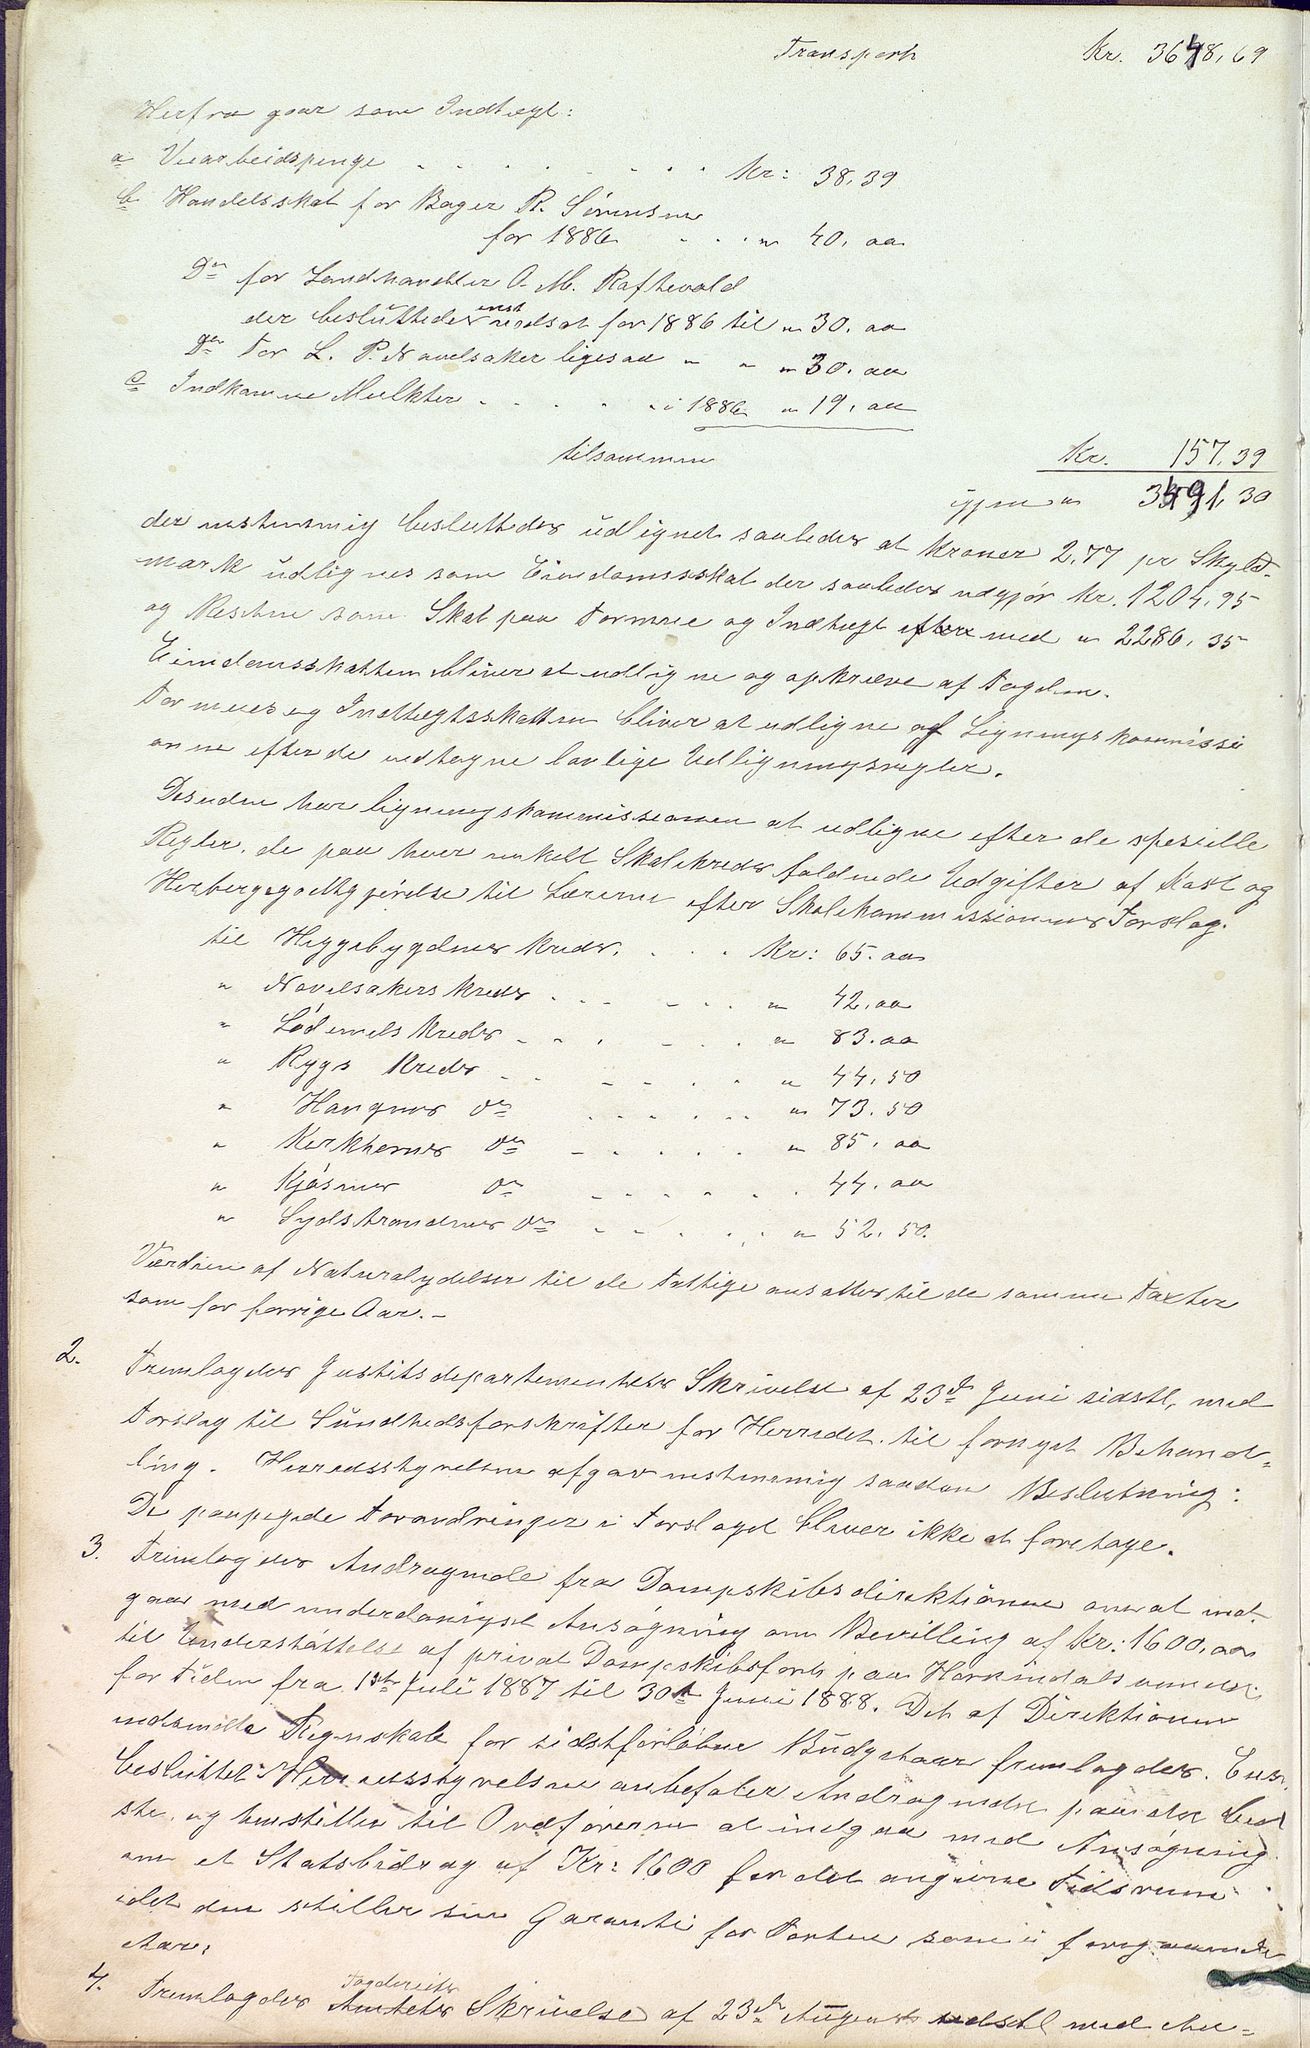 Transport Kr. 3648,69
Herfra gaar som Indtægt:
a Vearbeidspenge . . . . . . . . Kr: 38,39
b Handelsskat for Bager R. Sørensen
for 1886 . . . " 40. 00
Do for Landhandler O. M. Raftevold
der besluttedes indsat for 1886 til " 30. 00
Do For L. P. Navelsaker ligesaa " " " 30. 00
c Indkomne Mulkter . . . . . . i 1886 " 19, 00
tilsammen Kr. 157.39
igjen " 3491,30
der enstemmig besluttedes udlignet saaledes at Kroner 2,77 pr Skyld-
mark udlignes som Eiendomsskat der saaledes udgjør Kr. 1204,95
og Resten som Skat paa Formue og Indtægt med " 2286. 35
Eiendomsskatten bliver at udligne og opkræve af Fogden.
Formues og Indtægtsskatten bliver at udligne af Ligningskommissi
onen efter de vedtagne lovlige Udligningsregler.
Desuden har ligningskommissionen at udligne efter de spesielle
Regler, de paa hver enkelt Skolekreds faldende Udgifter af Kost og
Herbergegodtgjørelse til Lærerne efter Skolekommissionens Forslag.
til Heggebygdens Kreds. . . . Kr: 65. 00
" Navelsakers Kreds . . . . . . " 42. 00
" Lødemels Kreds . . . . . . " 83. 00
" Rygs Kreds . . . . . . " 44. 50
" Haugens do . . . . . . " 73. 50
" Kirkhornes do . . . . . " 85. 00
" Kjøsnes do . . . . . . 44. 00
" Sydstrandens do . . . . . " 52. 50.
Værdien af Naturalydelser til de Fattige ansattes til de samme Taxter
som for forrige Aar. –
2. Fremlagdes Justitsdepartementets Skrivelse af 23de Juni sidstl, med
Forslag til Sundhedsforskrifter for Herredet til fornyet Behand-
ling. Herredsstyrelsen afgav enstemmig saadan Beslutning:
De paapegede Forandringer i Forslaget bliver ikke at foretage.
3. Fremlagdes Andragende fra Dampskibsdirektionen om at ind-
gaa med underdanigst Ansøgning om Bevilling af Kr: 1600,00
til Understøttelse af privat Dampskibsfart paa Hornindalsvandet
for Tiden fra 1ste Juli 1887 til 30te Juni 1888. Det af Direktionen
indsendte Regnskab for sidstforløbne Budgetaar fremlagdes. Ens.
besluttet: Herredsstyrelsen anbefaler Andragendet paa det bed
ste og henstiller til Ordføreren at indgaa med Ansøgning
om et Statsbidrag af Kr: 1600 for det angivne Tidsrum
idet den stiller sin Garanti for Farten som i foregaaende
Aar.
4. Fremlagdes Fogderiets
Amtets Skrivelse af 23de August sidstl med An=